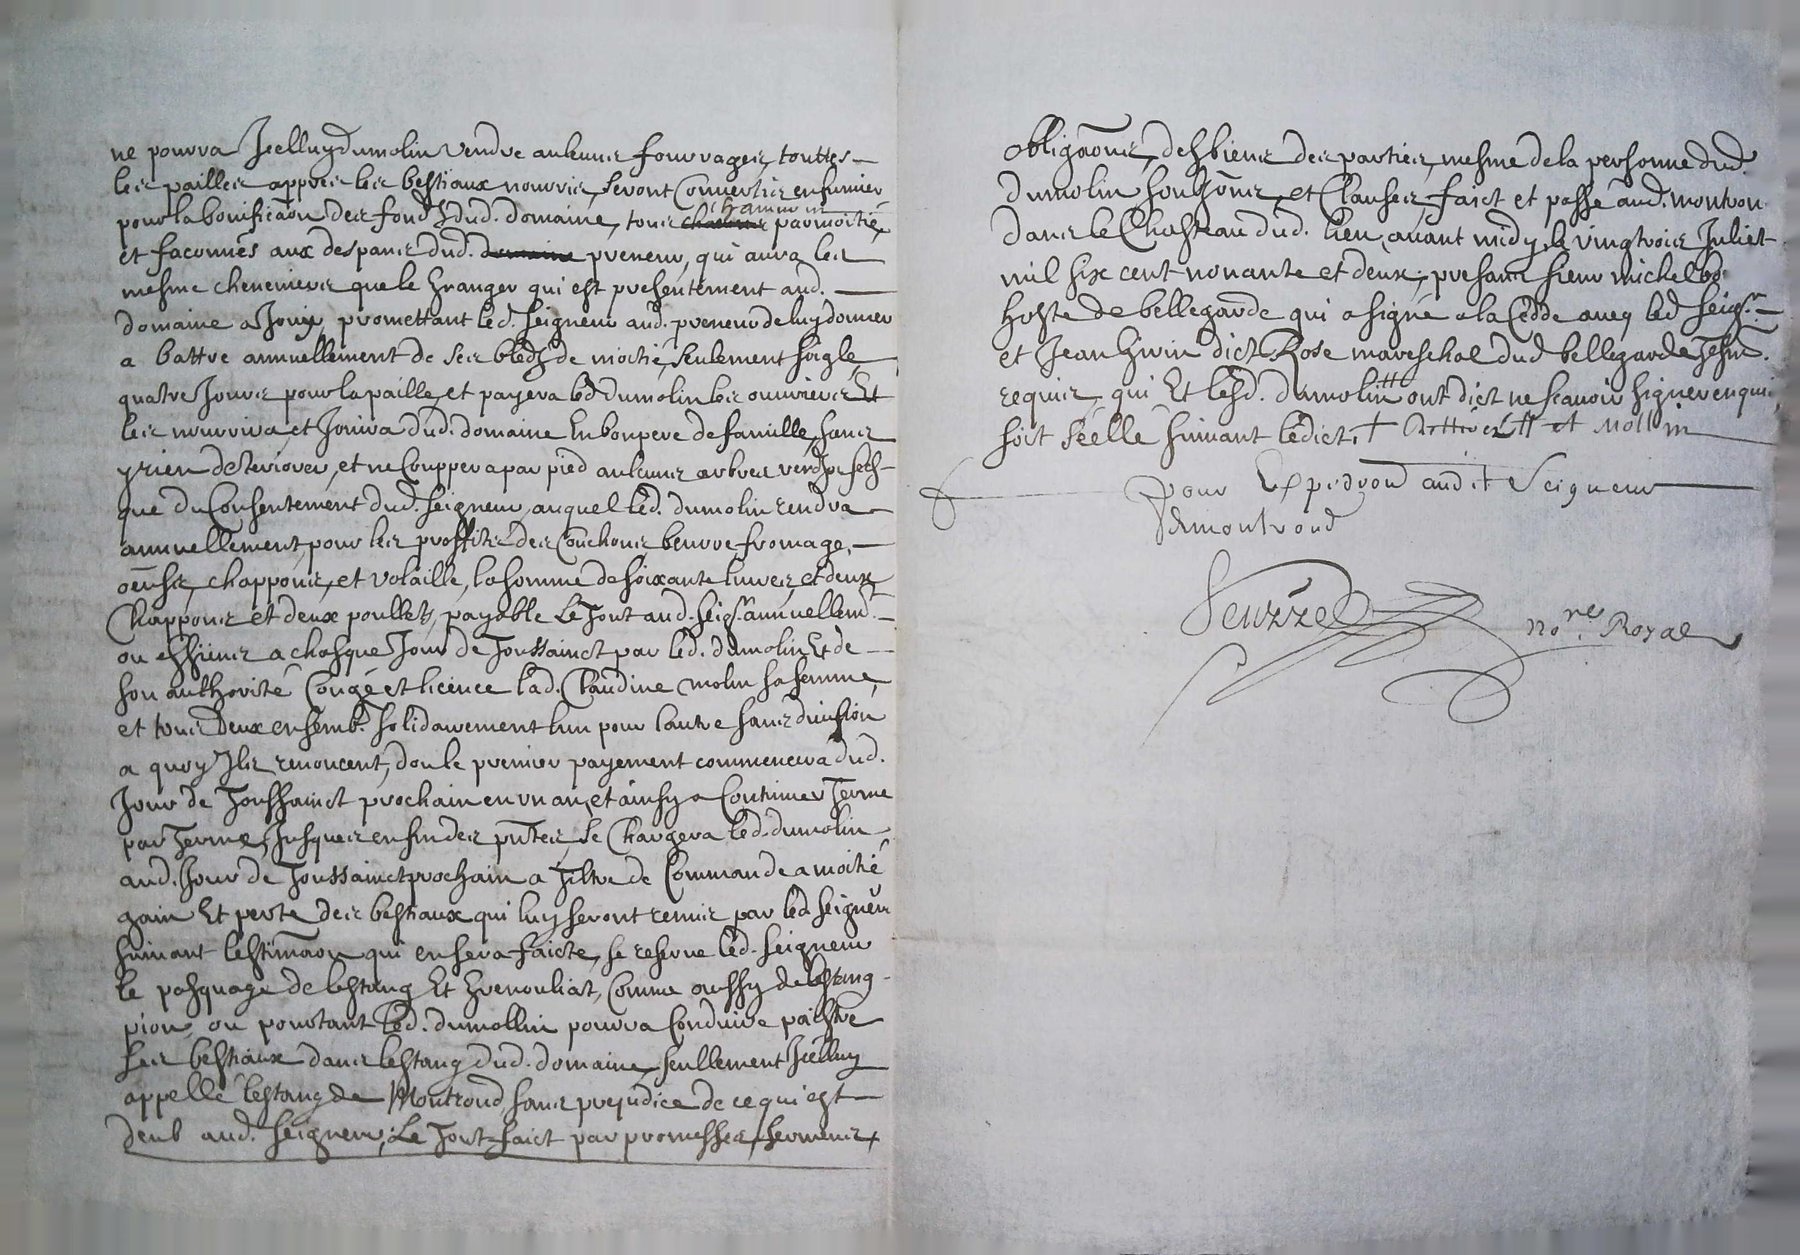 ne pourra Jcelluy dumolin vendre aulcuns fourrages, touttes
les pailles appres les bestiaux nourris, seront Converties en fumier
pour la bonificãon des fondz dud. domaine, tous chanvres par moitié,
et faconnés aux despans dud. preneur, qui aura les
mesme chenevieres que le granger qui est presentement aud.
domaine a Jouy, promettant led. seigneur aud. preneur de luy donner
a battre annuellement de ses bledz de moitié, seulement soigle,
quatre Jours pour la paille, et payera led dumolin les ouvriers Et
les nourrira, et Jouira dud. domaine En bon pere de famille, sans
y rien deteriorer, et ne Couppera par pied aulcuns arbres verdz ny secs
que du Consentement dud. seigneur, auquel led. dumolin rendra
annuellement, pour les proffits des Couchons, beurre fromage,
oeufs, chappons, et volaille, la somme de soixante livres, et deux
Chappons et deux poullets, payable Le Tout aud. seigr. annuellemt.
ou a chasque Jour de Toussainct par led. dumolin Et de
son authorité Congé et licence lad. Claudine molin sa femme,
et tous Deux ensemb. solidairement lun pour lautre sans division
a quoy Jls renoncent, don le premier payement commencera dud.
Jour de Toussainct prochain en un an, et ainsy a Continuer Terme
par Terme, Jusques en fin des pntes, se Chargera led. dumolin
aud. Jour de Toussainct prochain a Tiltre de Commande a moitié
gain Et perte des bestiaux qui luy seront remis par led. seigneur
suivant lestimãon qui en sera faicte, se reserve led. seigneur
le pasquage de lestang Et grenouliat, Comme aussy de lestang
pion, ou pourtant led. dumollin pourra Conduire paistre
ses bestiaux dans lestang dud. domaine, seullement Jcelluy
appellé lestang de Montrond, sans prejudice de ce qui est
deub aud. seigneur, Le Tout faict par promesses, serments,
obligãons, des biens des parties, mesme de la personne dud.
dumolin et Clauses, faict et passé aud. montron
dans le Chasteau dud. lieu, avant midy, le vingtrois Juliet
mil six cent nonante et deux, presans sieur michel
hoste de bellegarde qui a signé a la Cedde avec led seigr.
et Jean dict Rose mareschal dud bellegarde Tesm.
requis, qui Et lesd. dumolin ont dict ne scavoir signer enquis
soit séellé suivant lédict,
pour Expedition audit Seigneur
de montrond
Nores. Royal